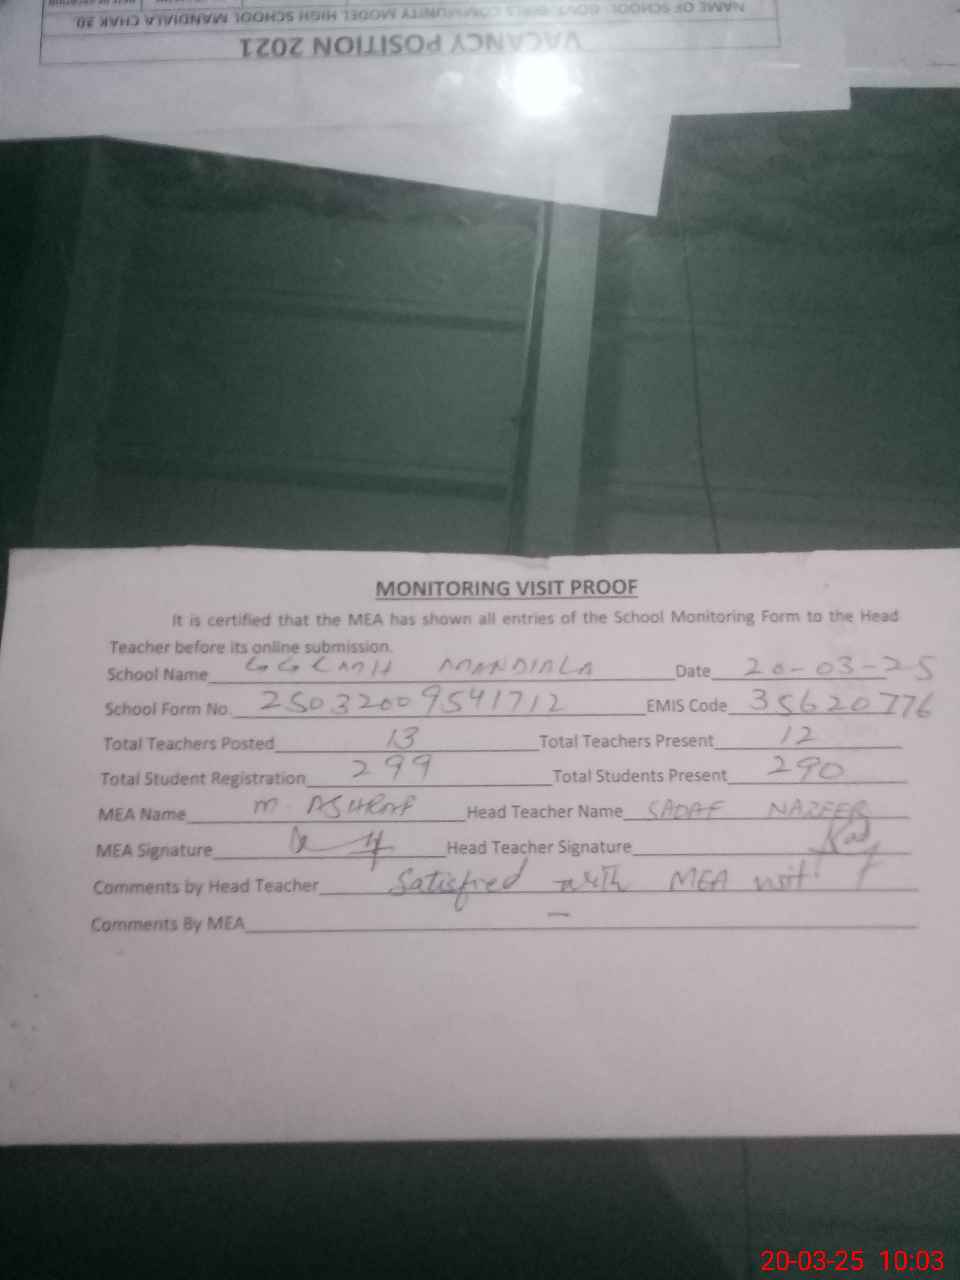 NAME OF SCHOOL: GOVT. GIRLS COMMUNITY MODEL HIGH SCHOOL MANDIALA CHAK 20
VACANCY POSITION 2021
MONITORING VISIT PROOF
It is certified that the MEA has shown all entries of the School Monitoring Form to the Head
Teacher before its online submission.
School Name GGCMH MANDIALA Date 20-03-25
School Form No. 25032009541712 EMIS Code 35620776
Total Teachers Posted 13 Total Teachers Present 12
Total Student Registration 299 Total Students Present 290
MEA Name M. ASHRAF Head Teacher Name SADAF NAZEER
MEA Signature Head Teacher Signature
Comments by Head Teacher Satisfied with MEA visit
Comments By MEA —
20-03-25 10:03